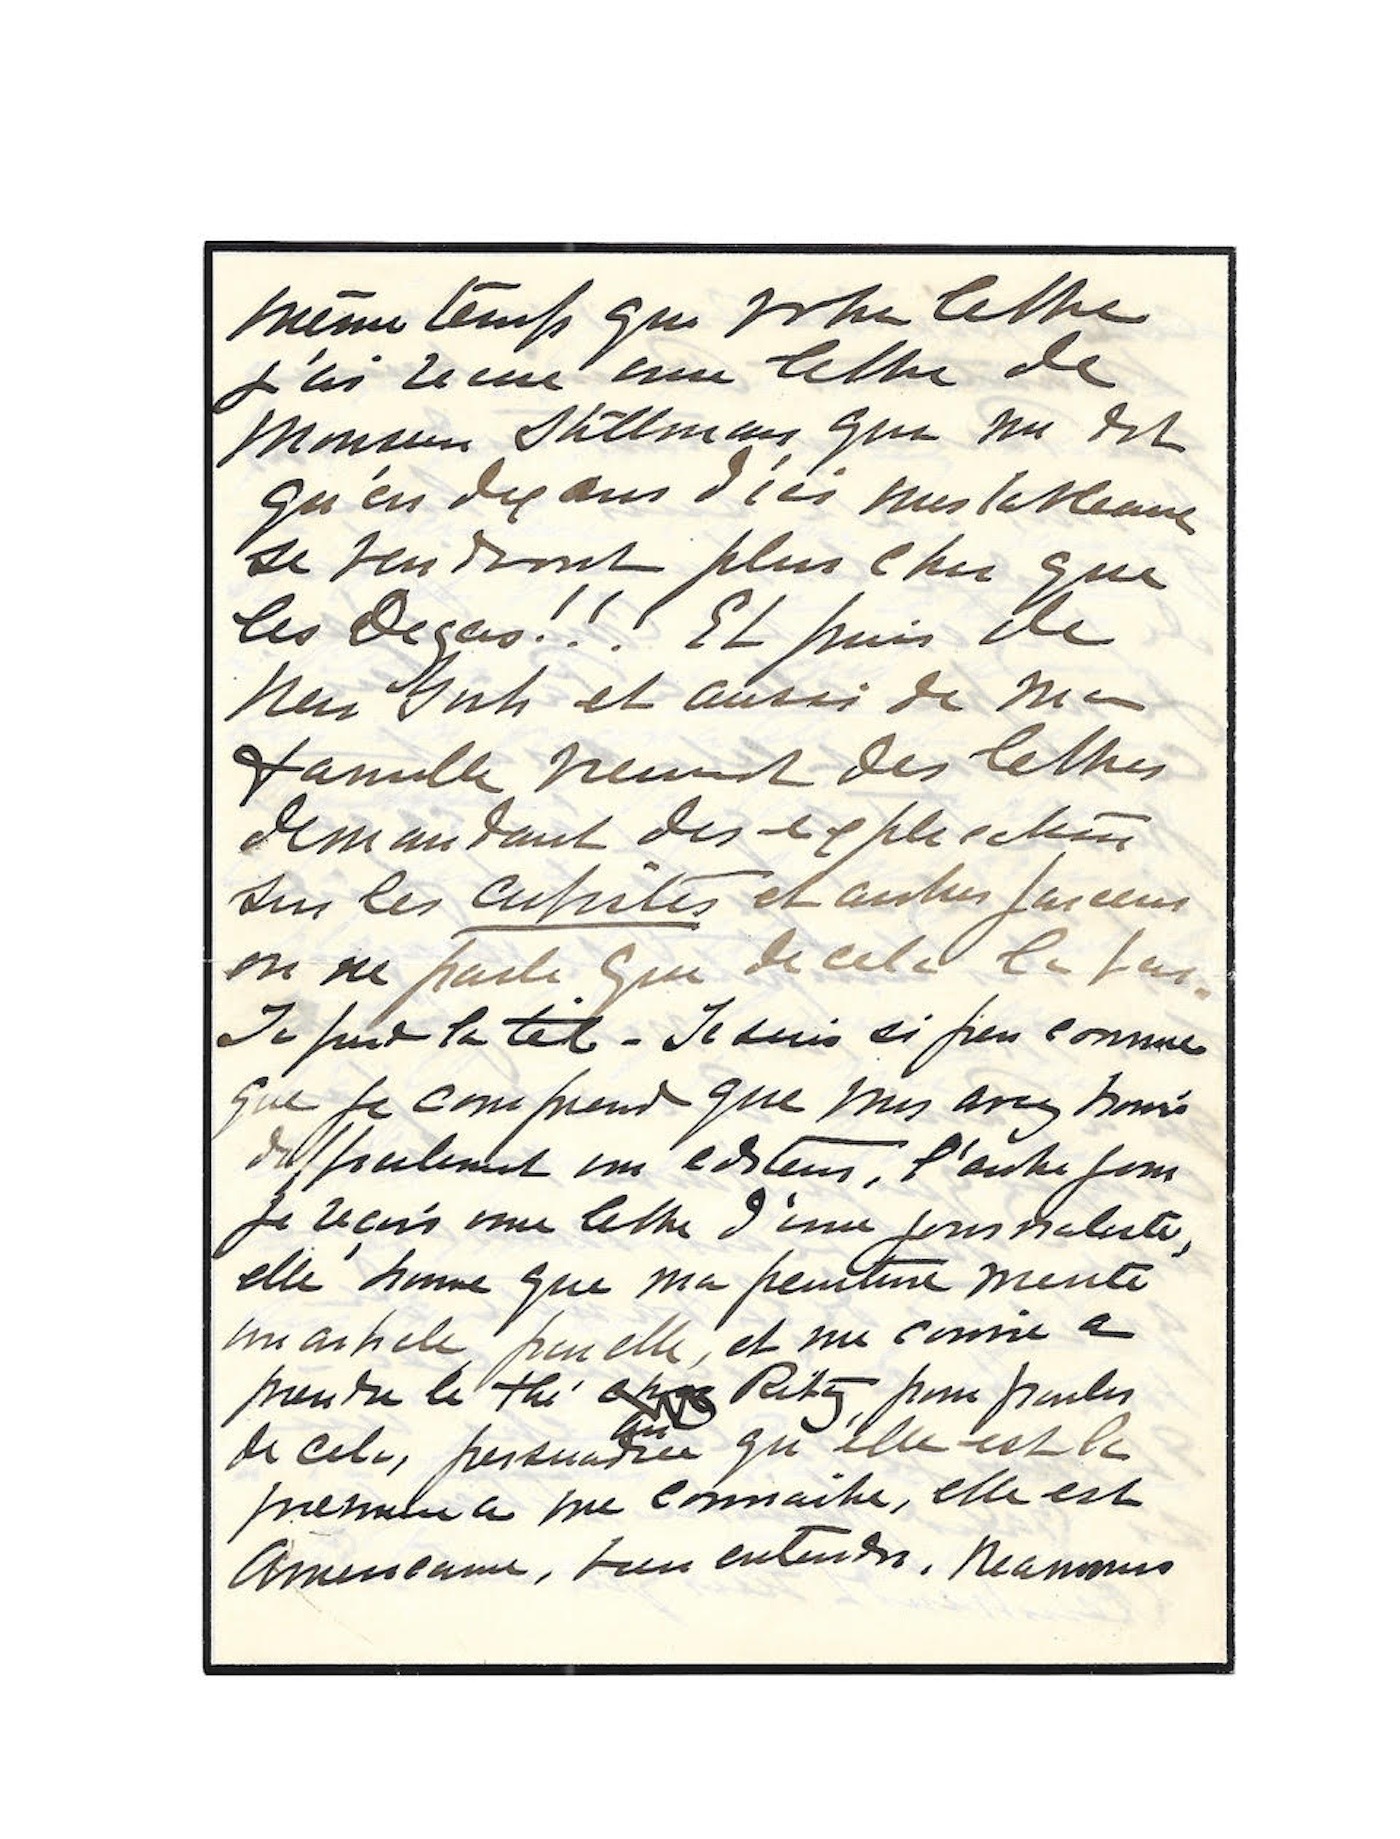 même temps que votre lettre
j'ai recue une lettre de
Monsieur Stillman que me dit
qu'en dix ans d'ici mes tableaux
se vendront plus cher que
les Degas!!! Et puis de
New York et aussi de ma
famille vient des lettres
demandant des explications
sur les cubistes et autres farceurs
on ne parle que de cela la bas.
Je perd la tête - Je suis si peu connue
que je comprend que vous avez trouvé
difficilement un editeur, l'autre jour
je reçois une lettre d'une journaliste,
elle trouve que ma peinture merite
un article par elle, et me convie a
prendre le thé au Ritz, pour parler
de cela, persuadée qu'elle est la
premiere a me connaitre, elle est
Americaine, bien entendu. Neanmoins